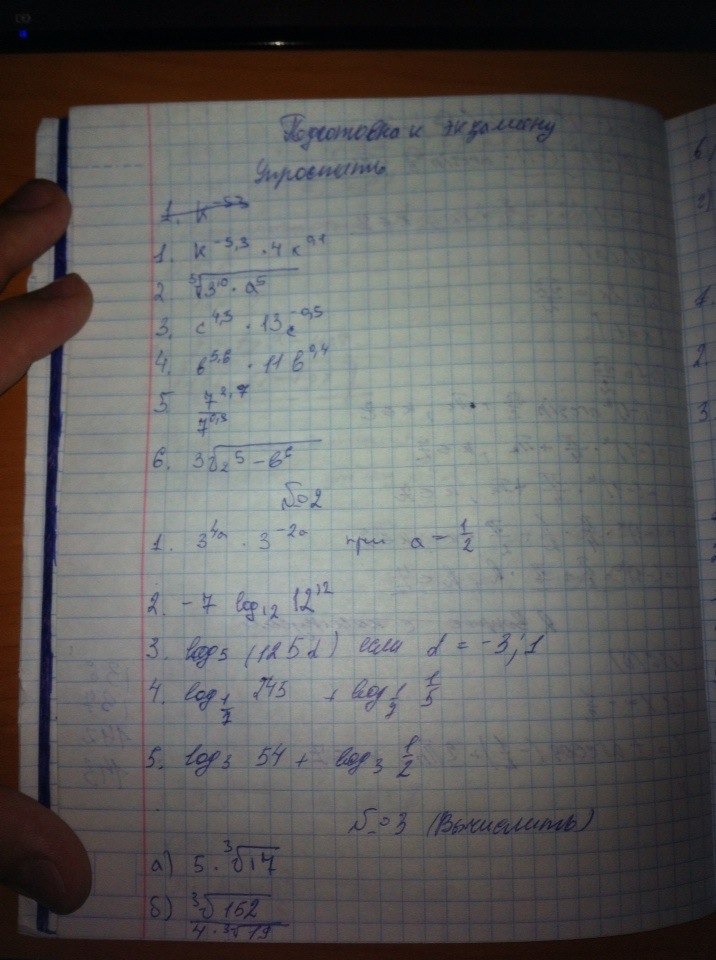 Подготовка к экзамену
Упростить
1. K^-5,3
1. K^-5,3 · 4 K^0,1
2. ∛(3^10 · a^5)
3. c^4,3 · 13c^-0,5
4. b^5,6 · 11 b^0,4
5. 7^2,7 / 7^0,3
6.
№2
1. 3^4a · 3^-2a при a = 1/2
2. -7 log_12 12^12
3. log_5 (125d) если d = -3,1
4. log_1/7 245 + log_1/7 1/5
5. log_3 54 + log_3 1/2
№3 (Вычислить)
а) 5 · ∛17
б) ∛162 / 4 · ∛19
в)
г)
1.
2.
3